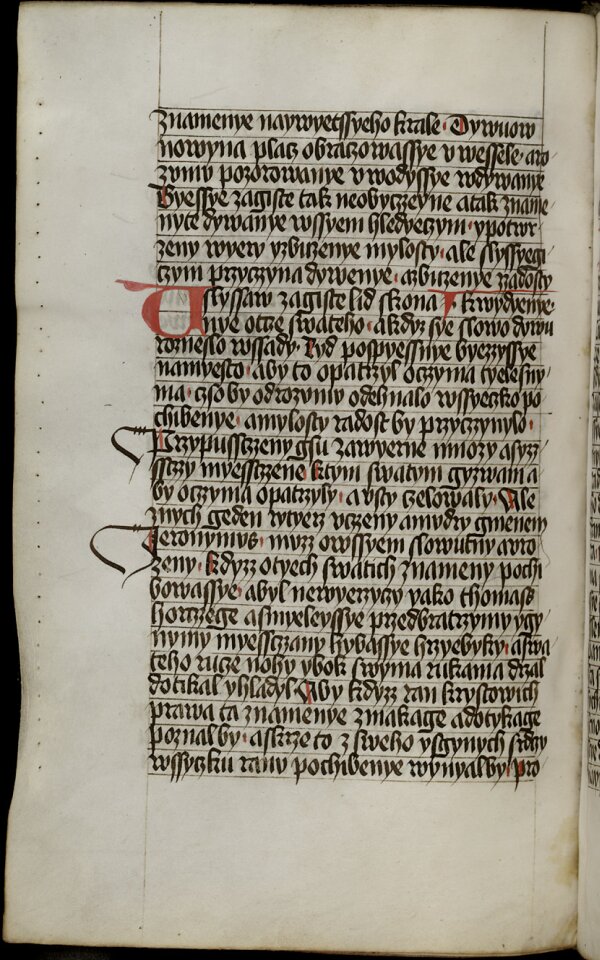 znamenye naywyetssyeho krale · Dywuow
nowyna placz obraczowassye v wessele · a ro
zumu pozorowanye v wodyssye wdywanye
Byessye zagiste tak neobyczeyne a tak zname
nyte dywanye wssyem hledyeczym · y potwr
zeny wyery y zbuzenye mylosty · ale slyssyegi
czym przyczyna dywenye · a zbuzenye zadosty
Uslyssaw zagiste lid skona · k wydyenye ·
nye otcze swateho · a kdyz sye slowo dywu
rozneslo wssady · lyd pospyessnye byezyssye
na myesto · aby to opatrzyl oczyma tyelesny
ma · czso by od rozumu odehnalo wssyeczko po
chibenye · a mylosty radost by przyczynylo ·
Przypussczeny gsu zawyerne mnozy a syzz
ssczy myessczene k tym swatym gyzwam a
by oczyma opatrzyly · a vsty czelowaly · Ale
z nych geden rytyerz vczeny a mudry gmenem
Jeronymus · muzz owssyem slowutny a vro
zeny · kdyzz o tyech swatich znameny pochi
bowassye · a byl newyerzyczy yako thomass
horczege a smyeleyssye przed bratrzymy y gy
nymy myessczany hybassye hrzyebyky · a swa
teho rucze nohy y bok swyma rukama drzal
dotikal y hladyl · Aby kdyzz ran krystowich
prawa ta znamenye zmakage a dotykage
poznal by · a skrze to z sweho y s gynych srdczy
wssyczku ranu pochibenye wynyal by · pro